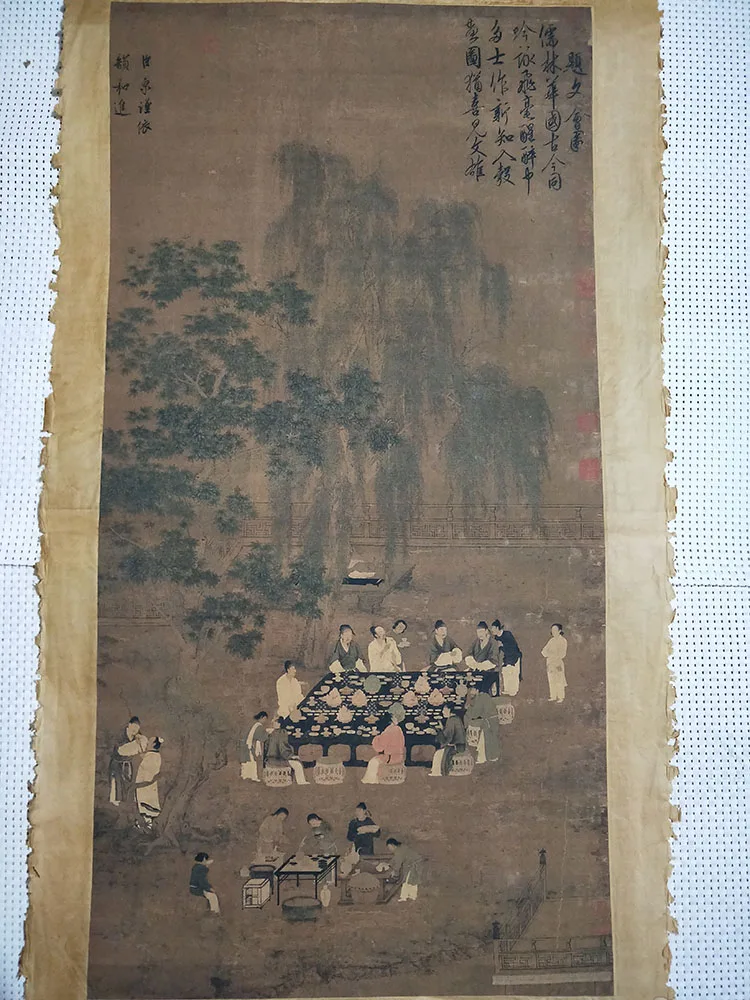 題文會圖
儒林華國古今同
吟詠飛毫醒醉中
多士作新知入彀
畫圖猶喜見文雄
臣京謹依
韻和進